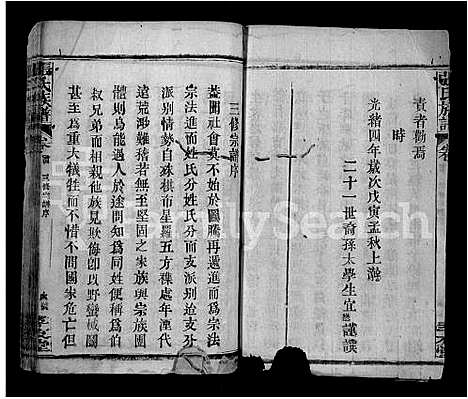 責者勸焉
時
光緒四年歲次戊寅孟秋上澣
二十一世裔孫太學生宜 謹譔
三修宗譜序
蓋聞社會莫不始於圖騰再遞進而爲宗法
宗法進而姓氏分姓氏分而支派別迨支分
派別情勢自殊棋布星羅五方襍處年湮代
遠荒渺難稽若無至堅固之家族與宗族團
體則烏能遇人於途問知爲同姓便稱爲伯
叔兄弟而相親他族見欺侮卽以野蠻械鬭
甚至爲重大犧牲而不惜不問國家危亡但
氏族譜
三修宗譜序
FamilySearch